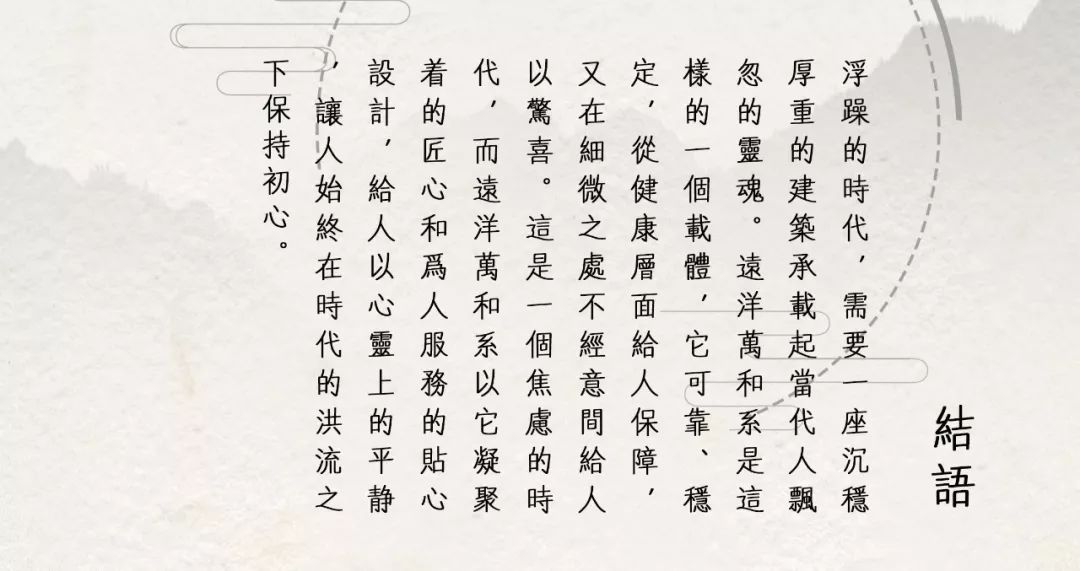 結語
浮躁的時代，需要一座沉穩
厚重的建築承載起當代人飄
忽的靈魂。遠洋萬和系是這
樣的一個載體，它可靠、穩
定，從健康層面給人保障，
又在細微之處不經意間給人
以驚喜。這是一個焦慮的時
代，而遠洋萬和系以它凝聚
着的匠心和爲人服務的貼心
設計，給人以心靈上的平静
，讓人始終在時代的洪流之
下保持初心。